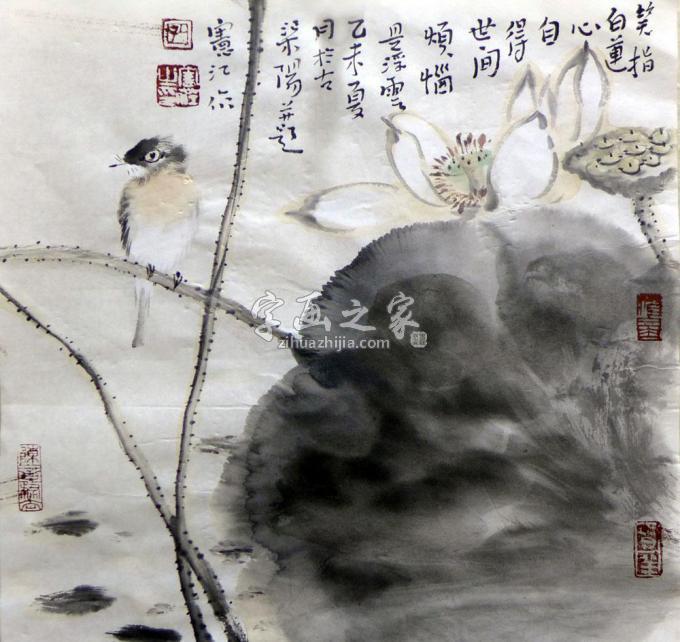 笑指
白蓮
心
自
得
世間
煩惱
是浮雲
乙未夏
月於古
梁陽并題
憲江作
字画之家
zihuazhijia.com